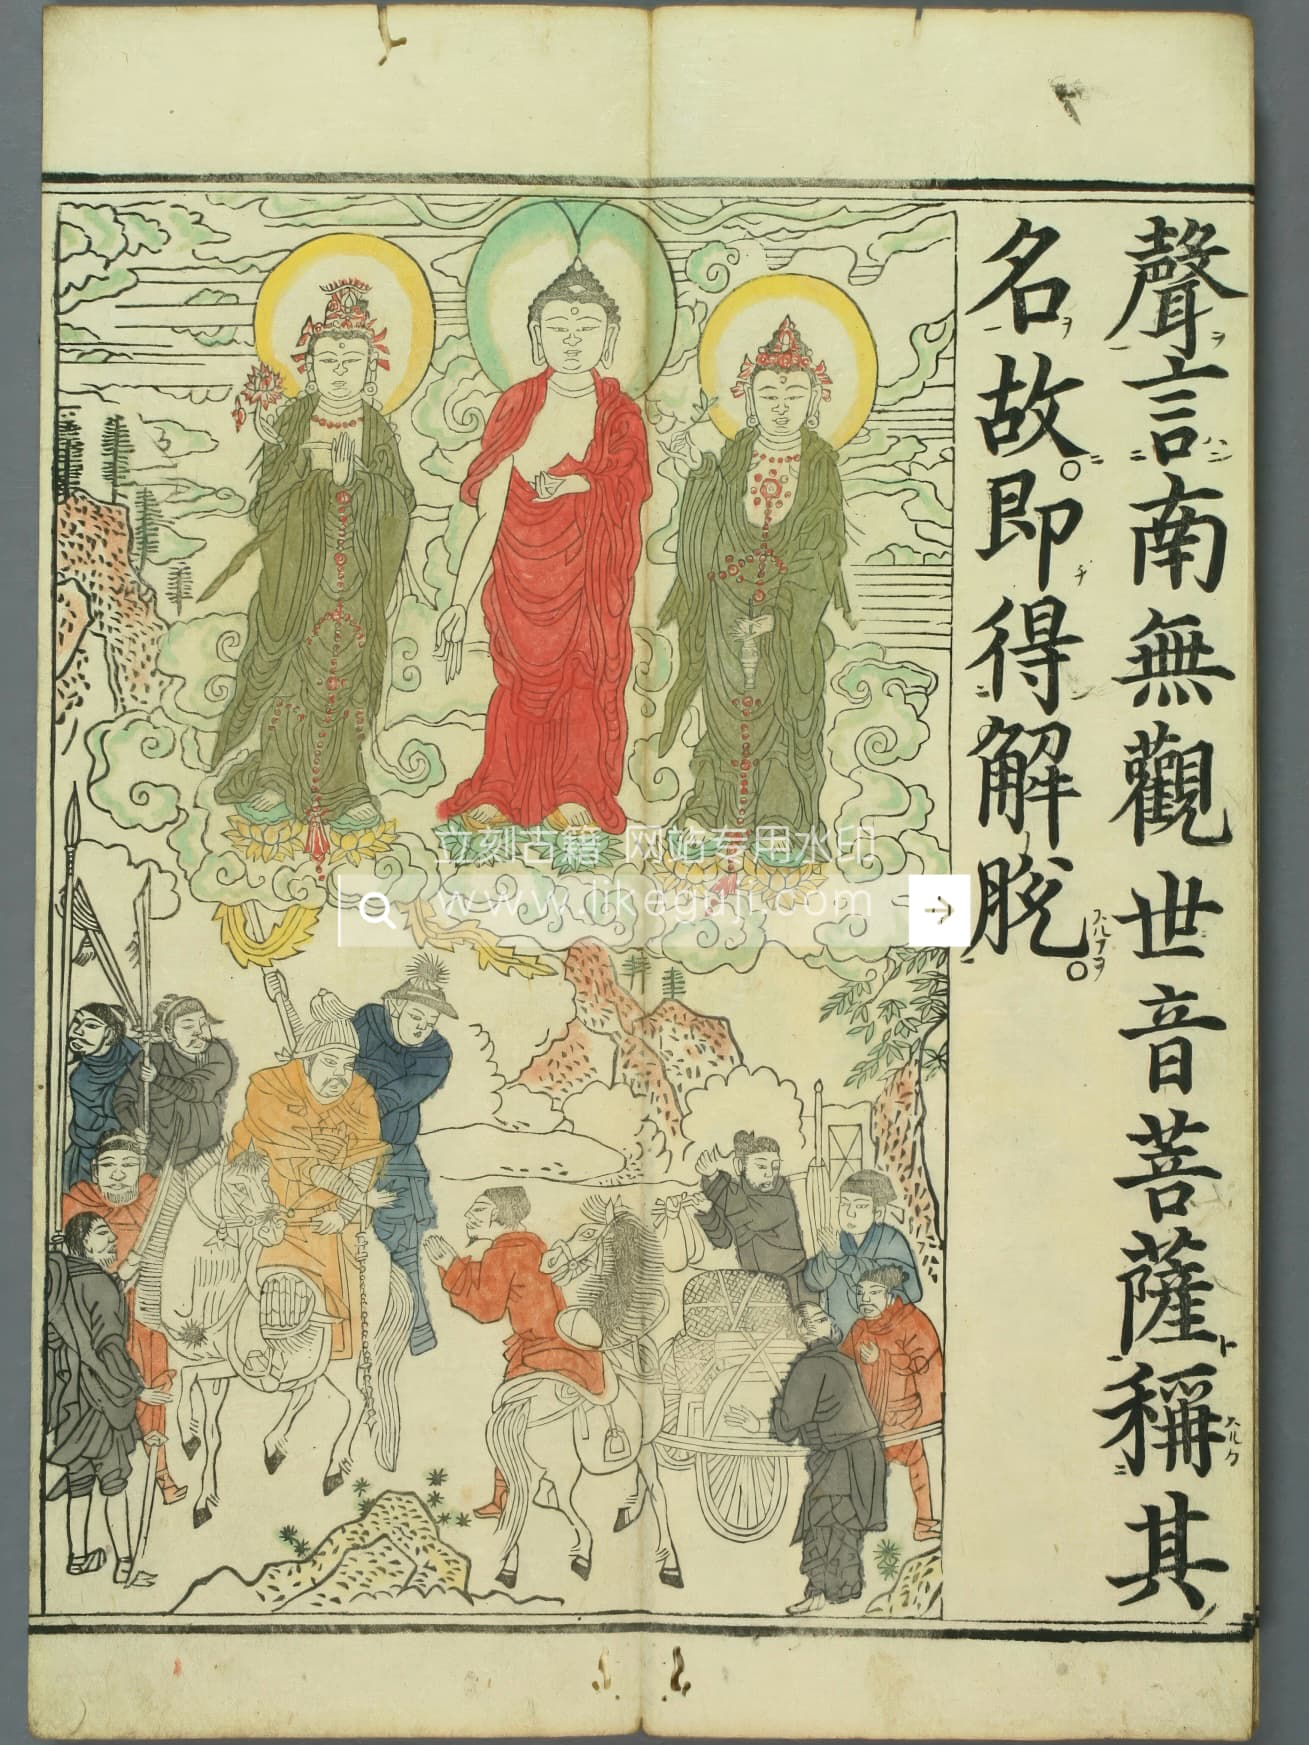 聲言南無觀世音菩薩稱其
名故。即得解脫。
立刻古籍 网站专用水印
www.likegdji.com